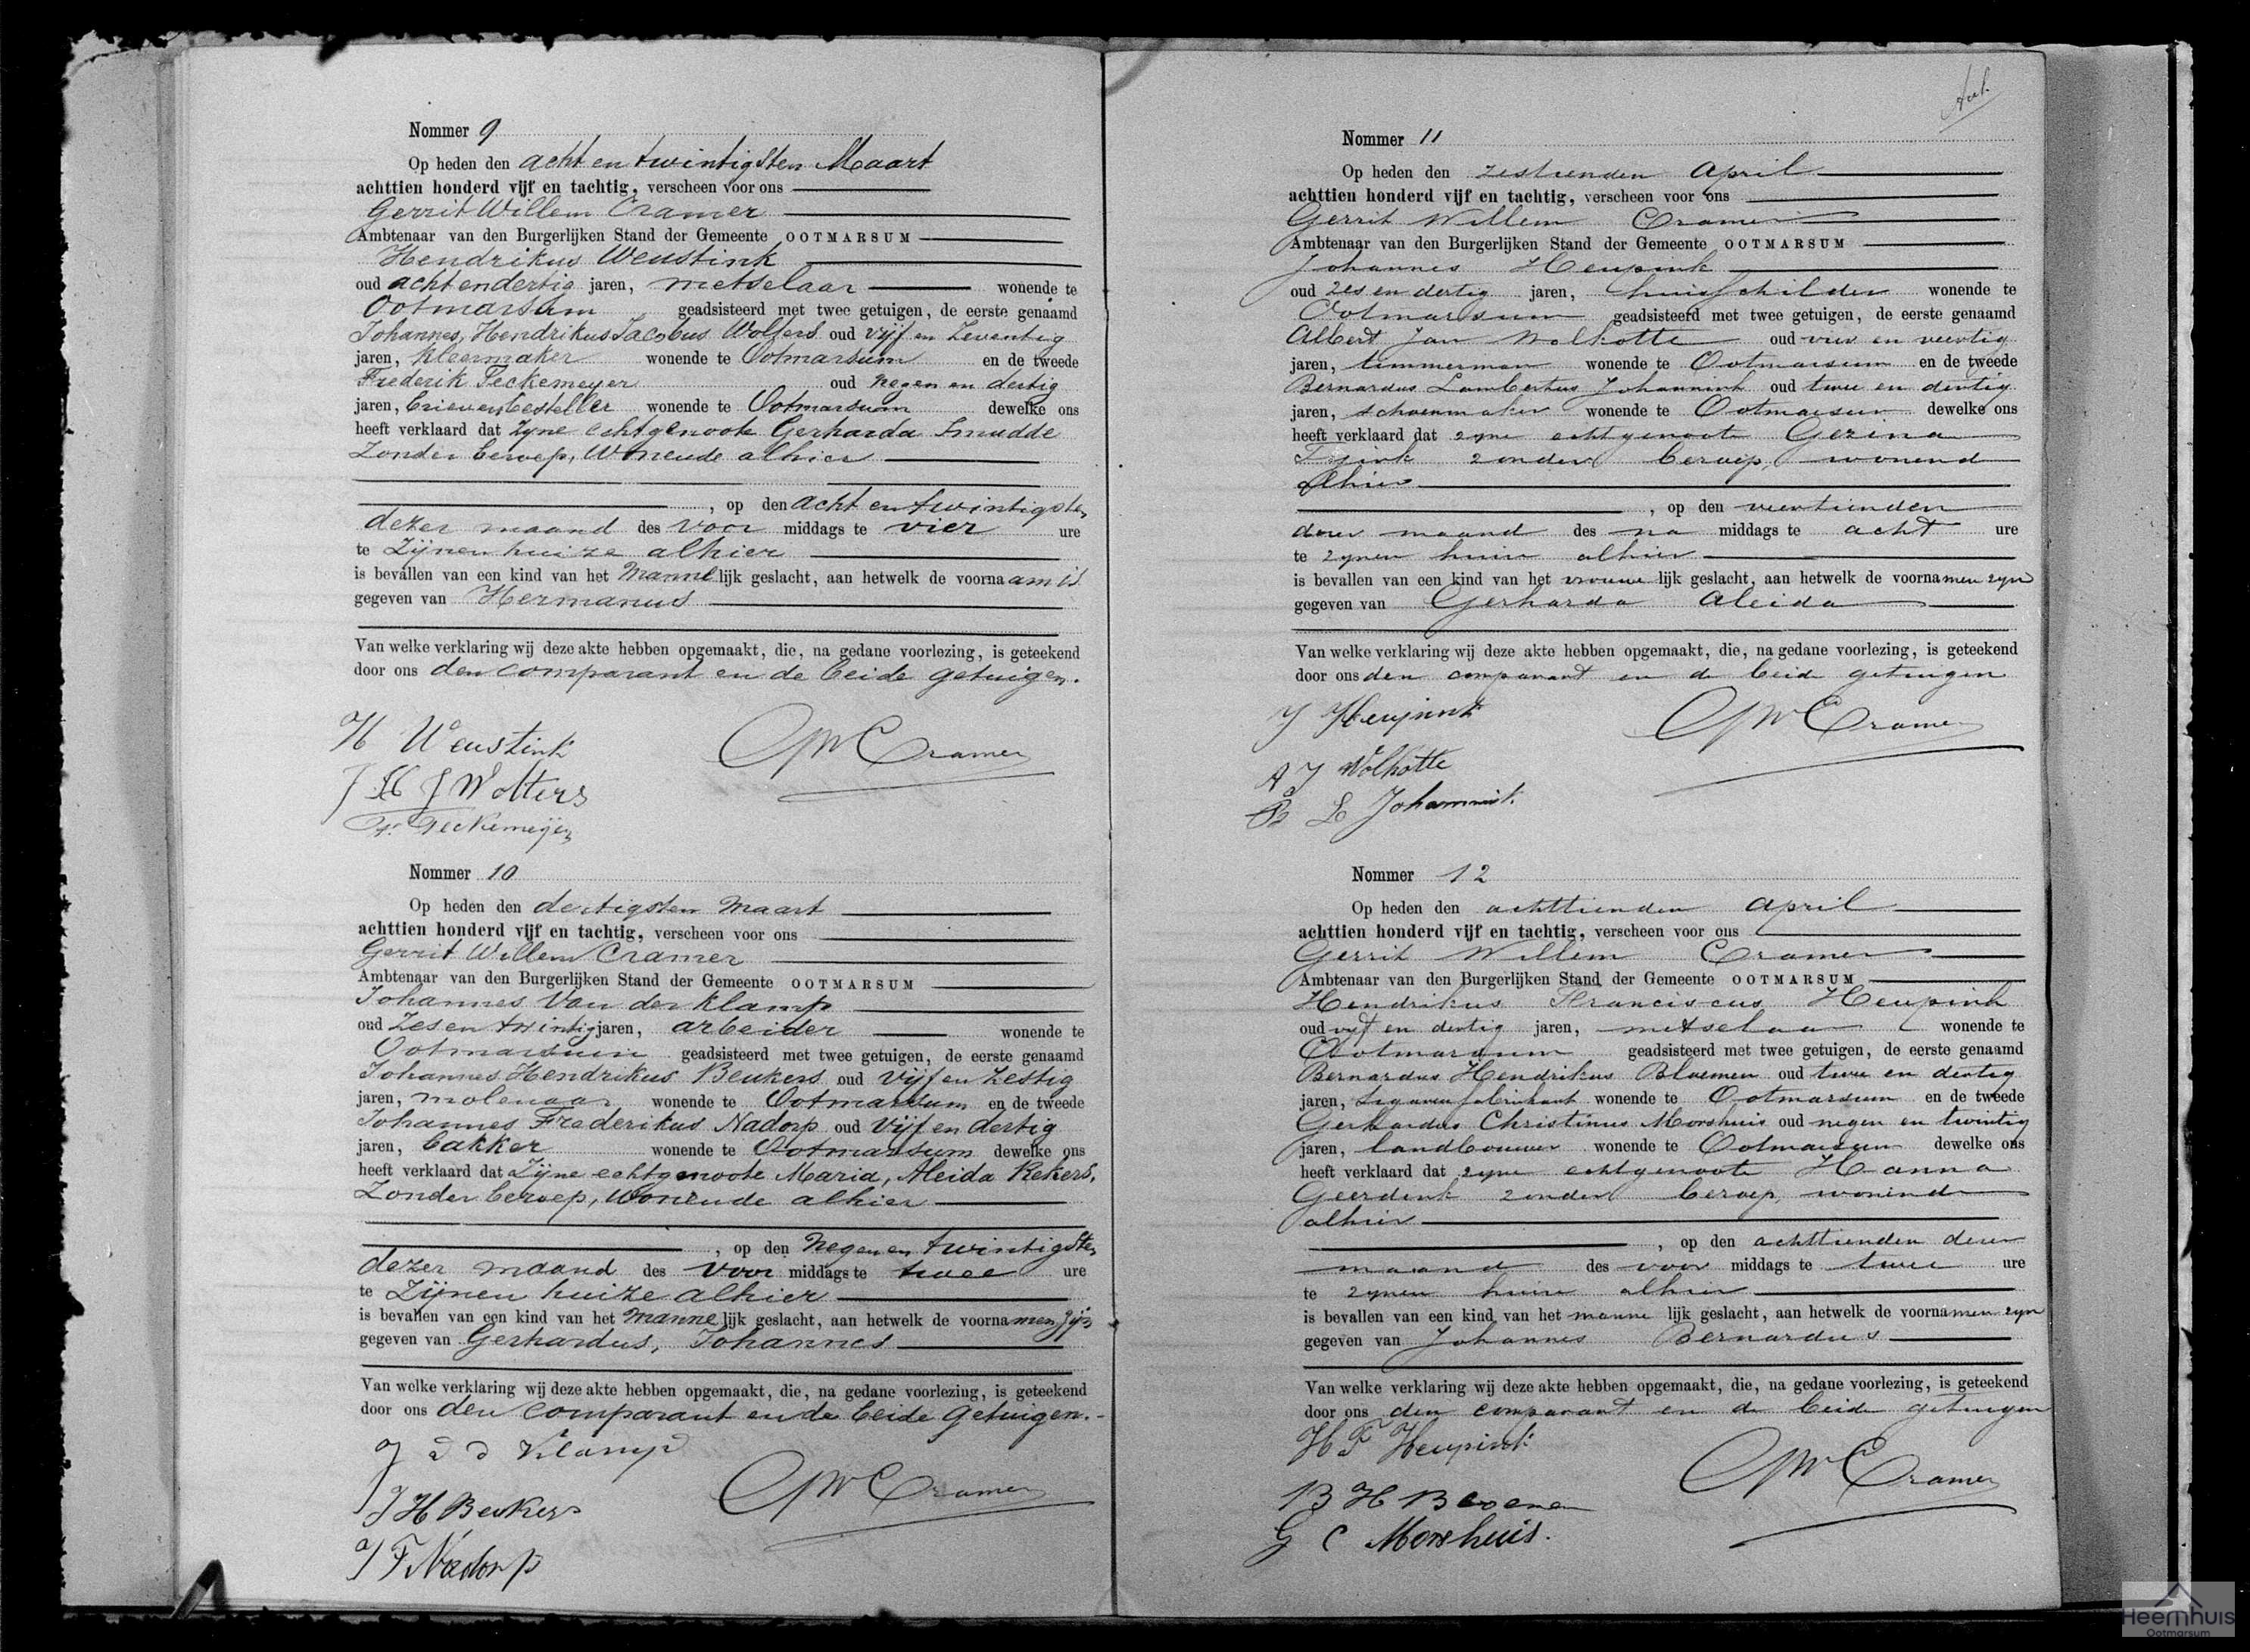 Nommer 9
Op heden den acht en twintigsten Maart
achttien honderd vijf en tachtig, verscheen voor ons
Gerrit Willem Cramer
Ambtenaar van den Burgerlijken Stand der Gemeente OOTMARSUM
Hendrikus Weustink
oud acht en dertig jaren, metselaar wonende te
Ootmarsum geadsisteerd met twee getuigen, de eerste genaamd
Johannes, Hendrikus Jacobus Wolters oud vijf en Zeventig
jaren, kleermaker wonende te Ootmarsum en de tweede
Frederik Feckemeyer oud negen en dertig
jaren, brievenbesteller wonende te Ootmarsum dewelke ons
heeft verklaard dat zyne echtgenoote Gerharda Smudde
Zonder beroep, Wonende alhier
, op den acht en twintigsten
dezer maand des voor middags te vier ure
te Zijnen huize alhier
is bevallen van een kind van het mannelijk geslacht, aan hetwelk de voornaam is
gegeven van Hermanus
Van welke verklaring wij deze akte hebben opgemaakt, die, na gedane voorlezing, is geteekend
door ons den comparant en de beide getuigen.
H Weustink GWCramer
J H J Wolters
Fr Feckemeijer
Nommer 10
Op heden den dertigsten Maart
achttien honderd vijf en tachtig, verscheen voor ons
Gerrit Willem Cramer
Ambtenaar van den Burgerlijken Stand der Gemeente OOTMARSUM
Johannes Van der Klamp
oud Zes en twintig jaren, arbeider wonende te
Ootmarsum geadsisteerd met twee getuigen, de eerste genaamd
Johannes Hendrikus Beukers oud vijf en Zestig
jaren, molenaar wonende te Ootmarsum en de tweede
Johannes Frederikus Nadorp oud vijf en dertig
jaren, bakker wonende te Ootmarsum dewelke ons
heeft verklaard dat Zijne echtgenoote Maria, Aleida Rekers,
Zonder beroep, Wonende alhier
, op den negen en twintigsten
dezer maand des voor middags te twee ure
te Zijnen huize alhier
is bevallen van een kind van het mannelijk geslacht, aan hetwelk de voornamen zijn
gegeven van Gerhardus, Johannes
Van welke verklaring wij deze akte hebben opgemaakt, die, na gedane voorlezing, is geteekend
door ons den comparant en de beide getuigen.
J v d Klamp GWCramer
J H Beukers
J F Nadorp
Nommer 11
Op heden den zestienden April
achttien honderd vijf en tachtig, verscheen voor ons
Gerrit Willem Cramer
Ambtenaar van den Burgerlijken Stand der Gemeente OOTMARSUM
Johannes Heupink
oud zes en dertig jaren, huisschilder wonende te
Ootmarsum geadsisteerd met twee getuigen, de eerste genaamd
Albert Jan Wolkotte oud vier en veertig
jaren, timmerman wonende te Ootmarsum en de tweede
Bernardus Lambertus Johannink oud twee en dertig
jaren, schoenmaker wonende te Ootmarsum dewelke ons
heeft verklaard dat zyne echtgenoote Gezina
zonder beroep, wonend
alhier
, op den veertienden
dezer maand des na middags te acht ure
te zynen huize alhier
is bevallen van een kind van het vrouwelijk geslacht, aan hetwelk de voornamen zyn
gegeven van Gerharda Aleida
Van welke verklaring wij deze akte hebben opgemaakt, die, na gedane voorlezing, is geteekend
door ons den comparant en de beide getuigen
J Heupink GWCramer
A J Wolkotte
B L Johannink.
Nommer 12
Op heden den achttienden April
achttien honderd vijf en tachtig, verscheen voor ons
Gerrit Willem Cramer
Ambtenaar van den Burgerlijken Stand der Gemeente OOTMARSUM
Hendrikus Franciscus Heupink
oud vyf en dertig jaren, metselaar wonende te
Ootmarsum geadsisteerd met twee getuigen, de eerste genaamd
Bernardus Hendrikus Bloemen oud twee en dertig
jaren, sigarenfabrikant wonende te Ootmarsum en de tweede
Gerhardus Christinus Morshuis oud negen en twintig
jaren, landbouwer wonende te Ootmarsum dewelke ons
heeft verklaard dat zyne echtgenoote Hanna
Geerdink zonder beroep, wonende
alhier
, op den achttienden dezer
maand des voor middags te twee ure
te zynen huize alhier
is bevallen van een kind van het mannelijk geslacht, aan hetwelk de voornamen zyn
gegeven van Johannes Bernardus
Van welke verklaring wij deze akte hebben opgemaakt, die, na gedane voorlezing, is geteekend
door ons den comparant en de beide getuigen
H F Heupink GWCramer
B H Bloemen
G C Morshuis.
Heemhuis
Ootmarsum